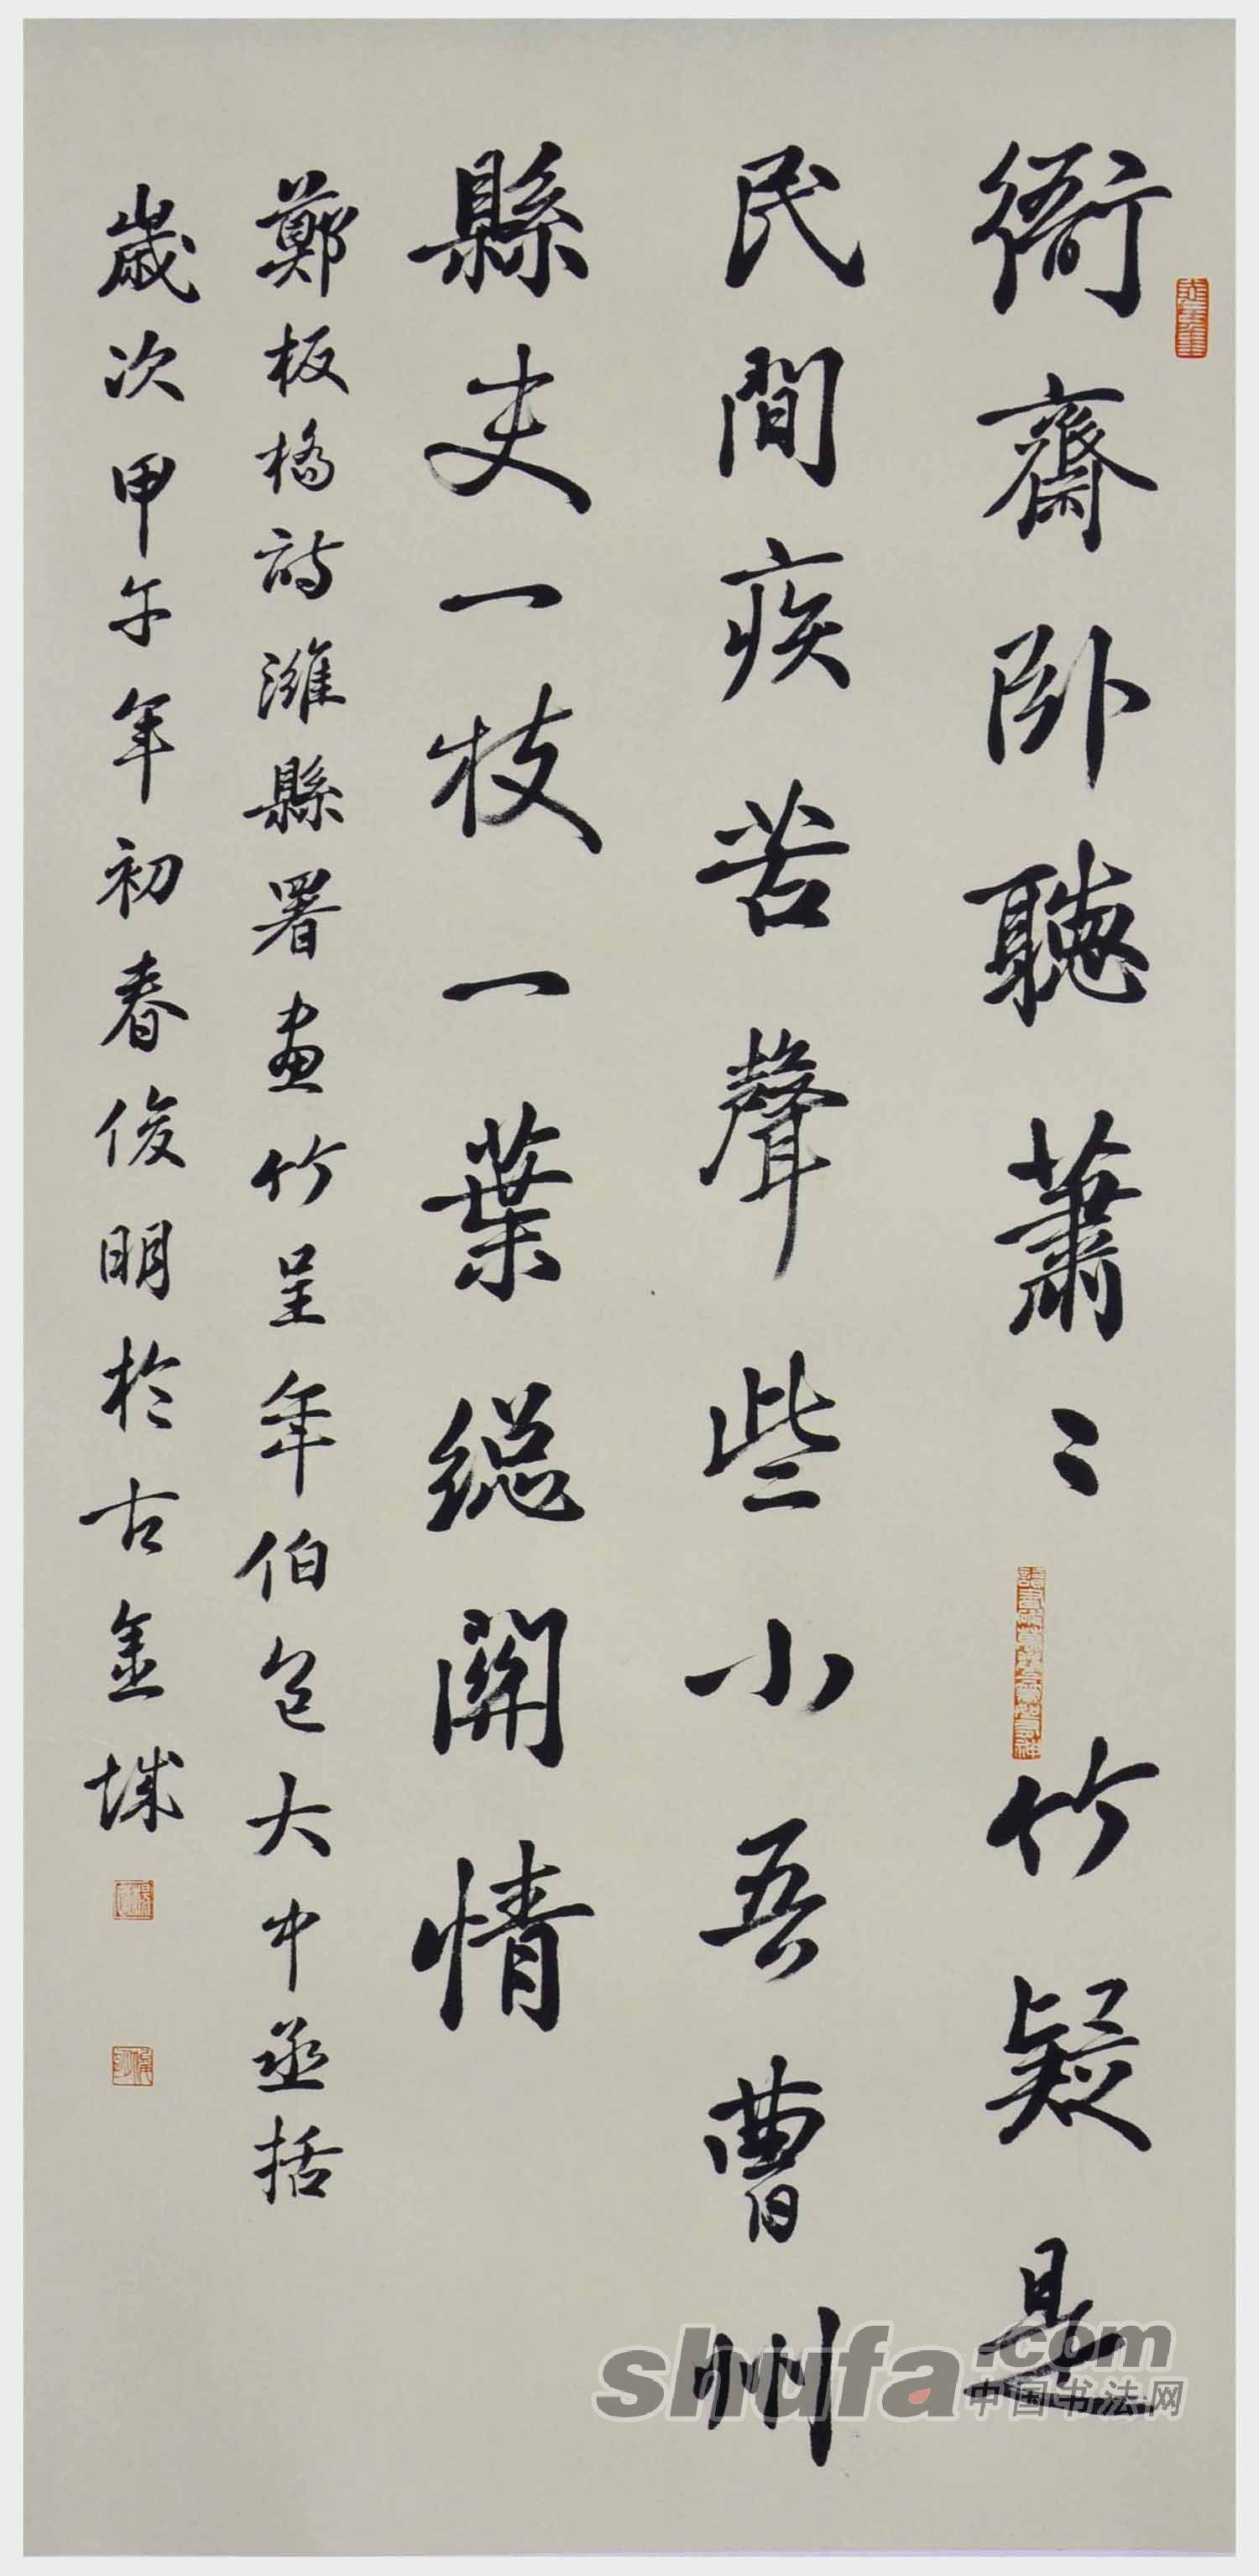 衙齋卧聽蕭〻竹疑是
民間疾苦聲些小吾曹州
縣吏一枝一葉総關情
鄭板橋詩濰縣署畫竹呈年伯包大中丞括
歲次甲午年初春俊明於古金城
shufa.com
中国书法网